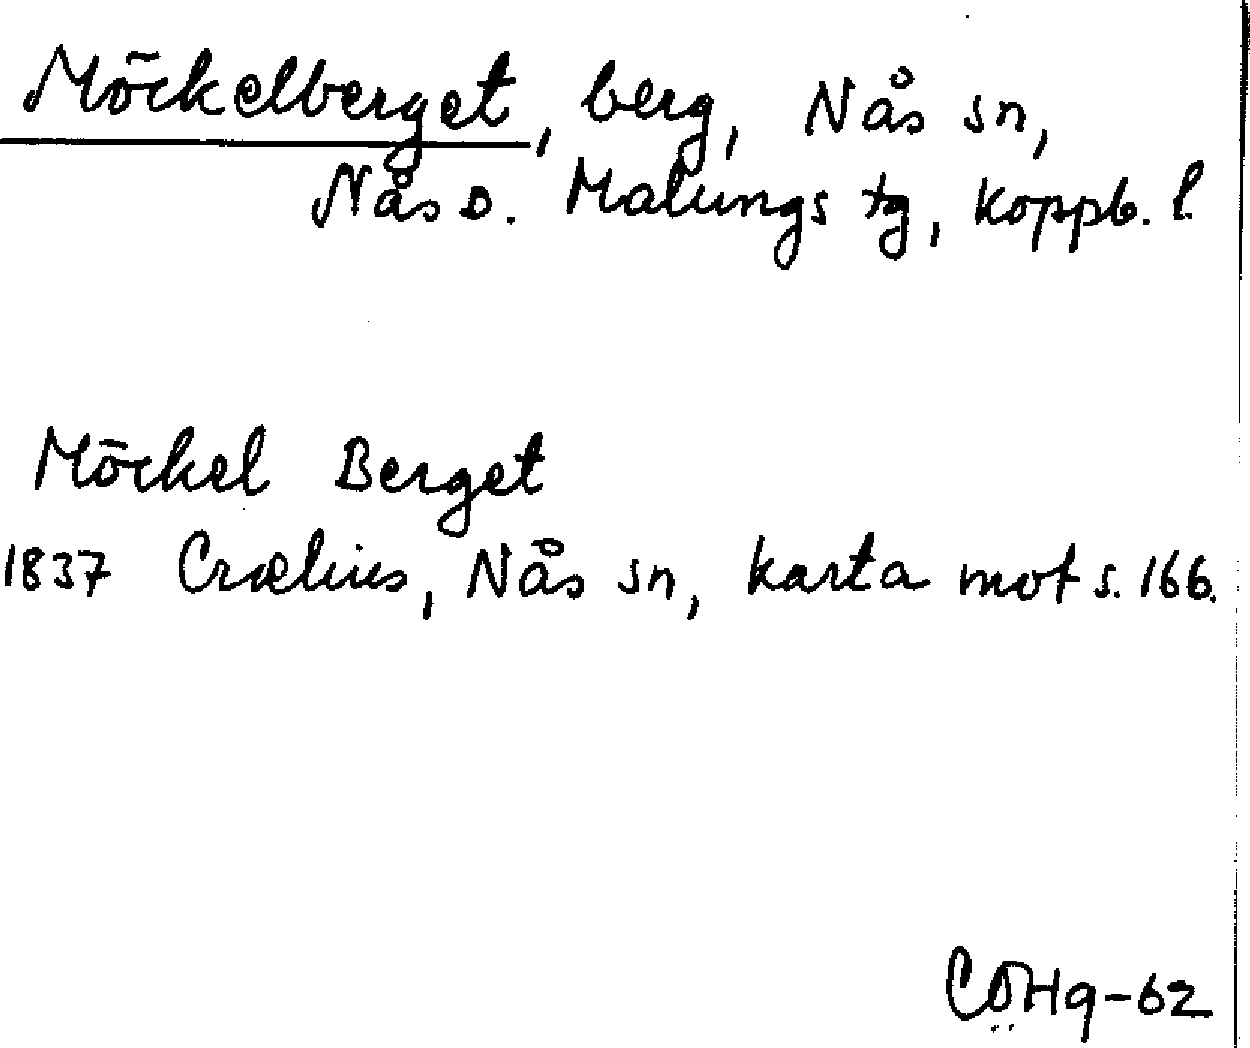 Möckelberget, berg, Nås sn,
Nås o. Malungs tg, Koppb. l.
Möckel Berget
1837 Crælius, Nås sn, karta mot s. 166.